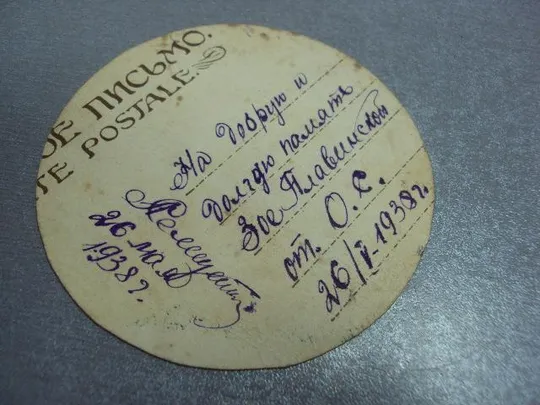 ОЕ ПИСЬМО.
TE POSTALE.
На добрую и
долгую память
Зое Плавинской
от. О. С.
26/V-1938г.
26 мая
1938г.